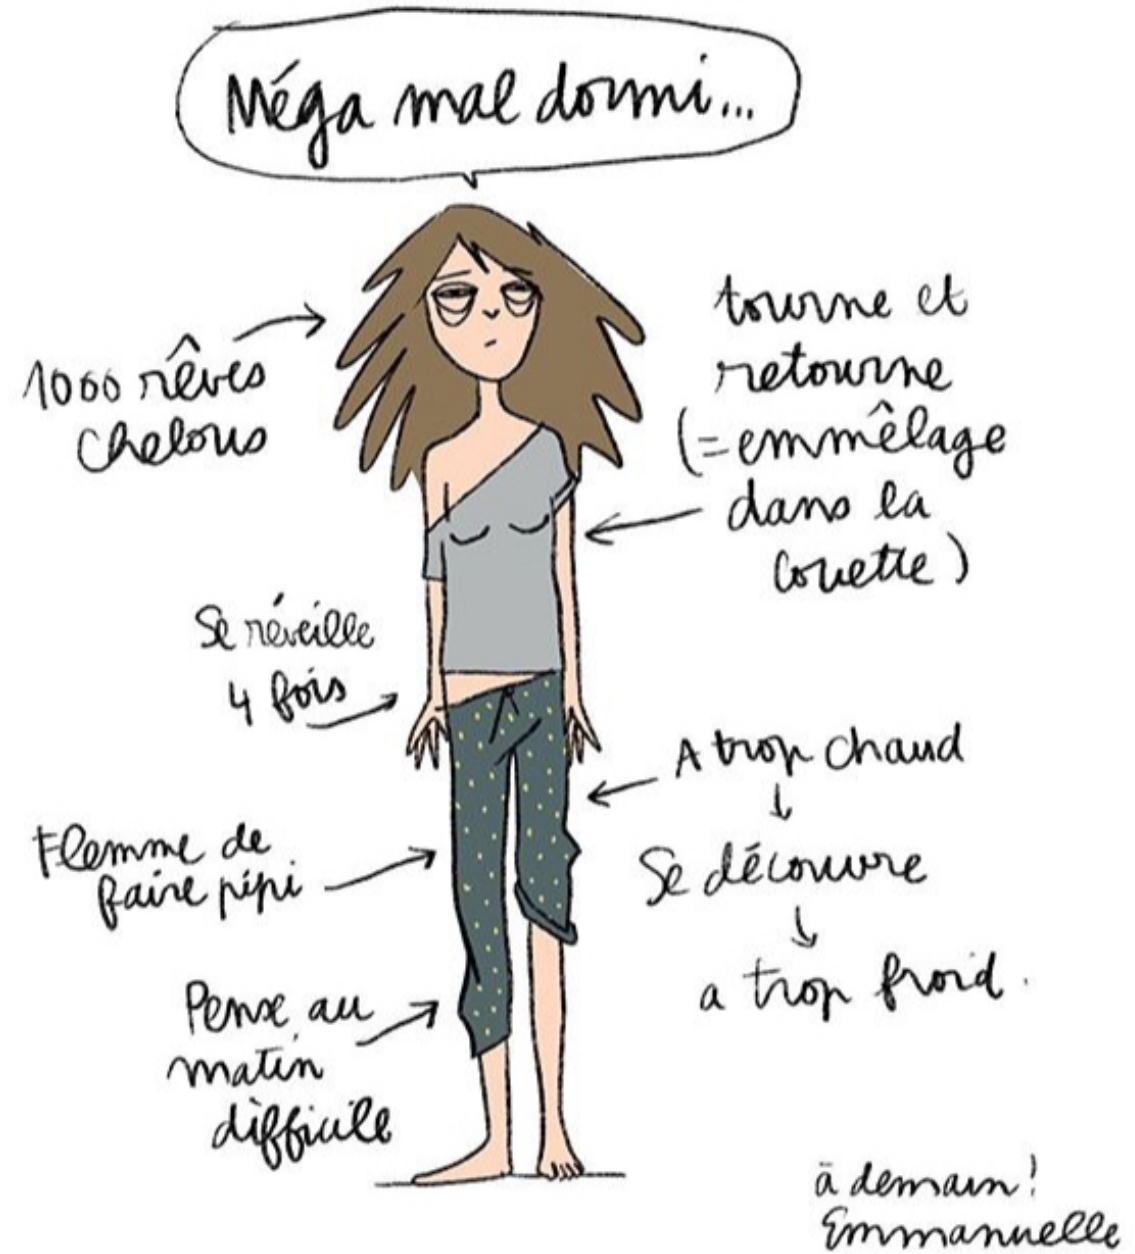 Méga mal dormi...
1000 rêves
chelous
tourne et
retourne
(=emmêlage
dans la
couette)
Se réveille
4 fois
A trop chaud
↓
Se découvre
↓
a trop froid.
Flemme de
faire pipi
Pense au
matin
difficile
à demain!
Emmanuelle